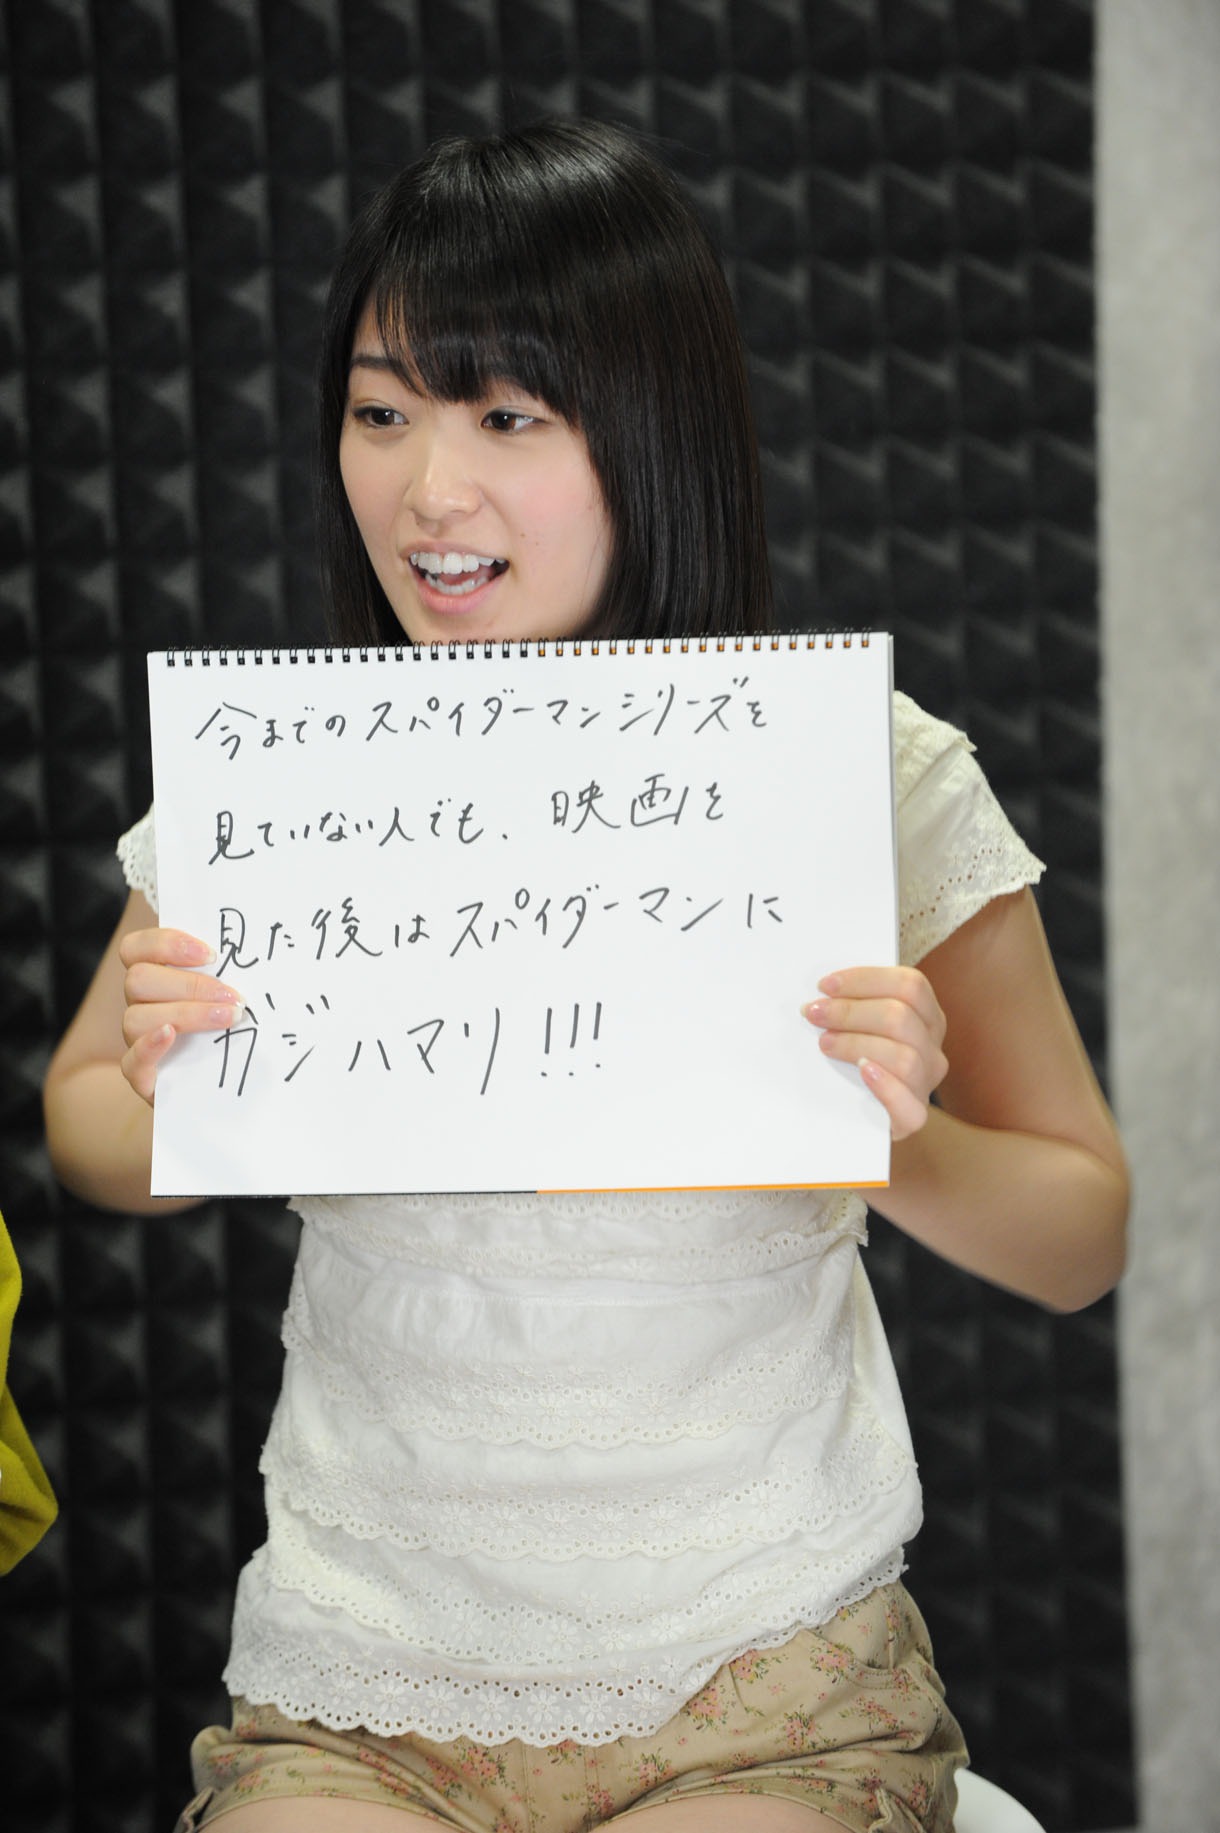 今までのスパイダーマンシリーズを
見ていない人でも、映画を
見た後はスパイダーマンに
ガジハマリ!!!